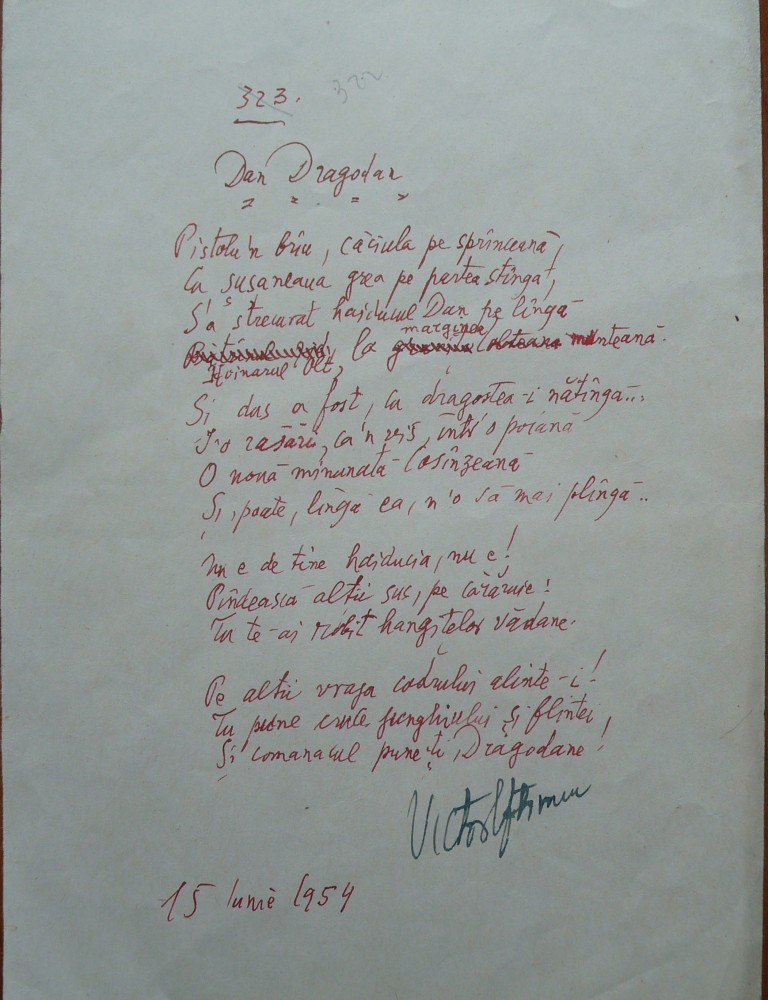 323. 322
Dan Dragodan
Pistolu'n brîu, căciula pe sprînceană,
Cu susaneaua grea pe partea stîngă,
S'a strecurat haiducul Dan pe lîngă
marginea
Hoinarul Olt, la olteana munteană.
Si dus a fost, cu dragostea-i nătîngă...
I-o răsări, ca'n vis, într'o poiană
O nouă minunată Cosînzeană
Și, poate, lîngă ea, n'o să mai plîngă..
Nu e de tine haiducia, nu e!
Pîndească alții sus, pe cărăruie!
Tu te-ai robit hangițelor vădane.
Pe alții vraja codrului alinte-i!
Tu pune cruce junghiului și flintei,
Și comanacul pune-ți, Dragodane!
Victor Eftimiu
15 Iunie 1954